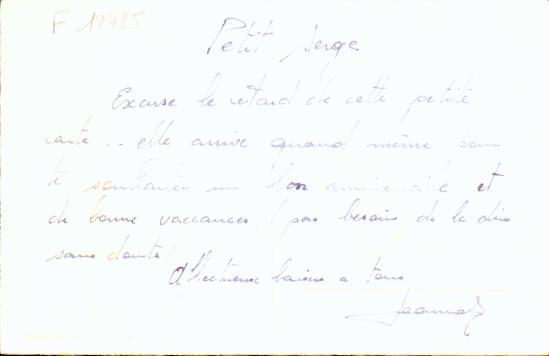 F 12725
Petit Serge
Excuse le retard de cette petite
carte .. elle arrive quand même pour
te souhaiter un bon anniversaire et
de bonne vaccances ! pas besoin de le dire
sans doute !
Affectueux baisers a tous